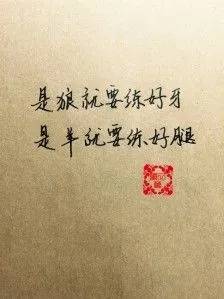 是狼就要练好牙
是羊就要练好腿